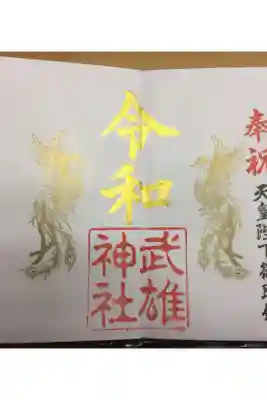 奉祝
天皇陛下御即位
令和
武雄
神社